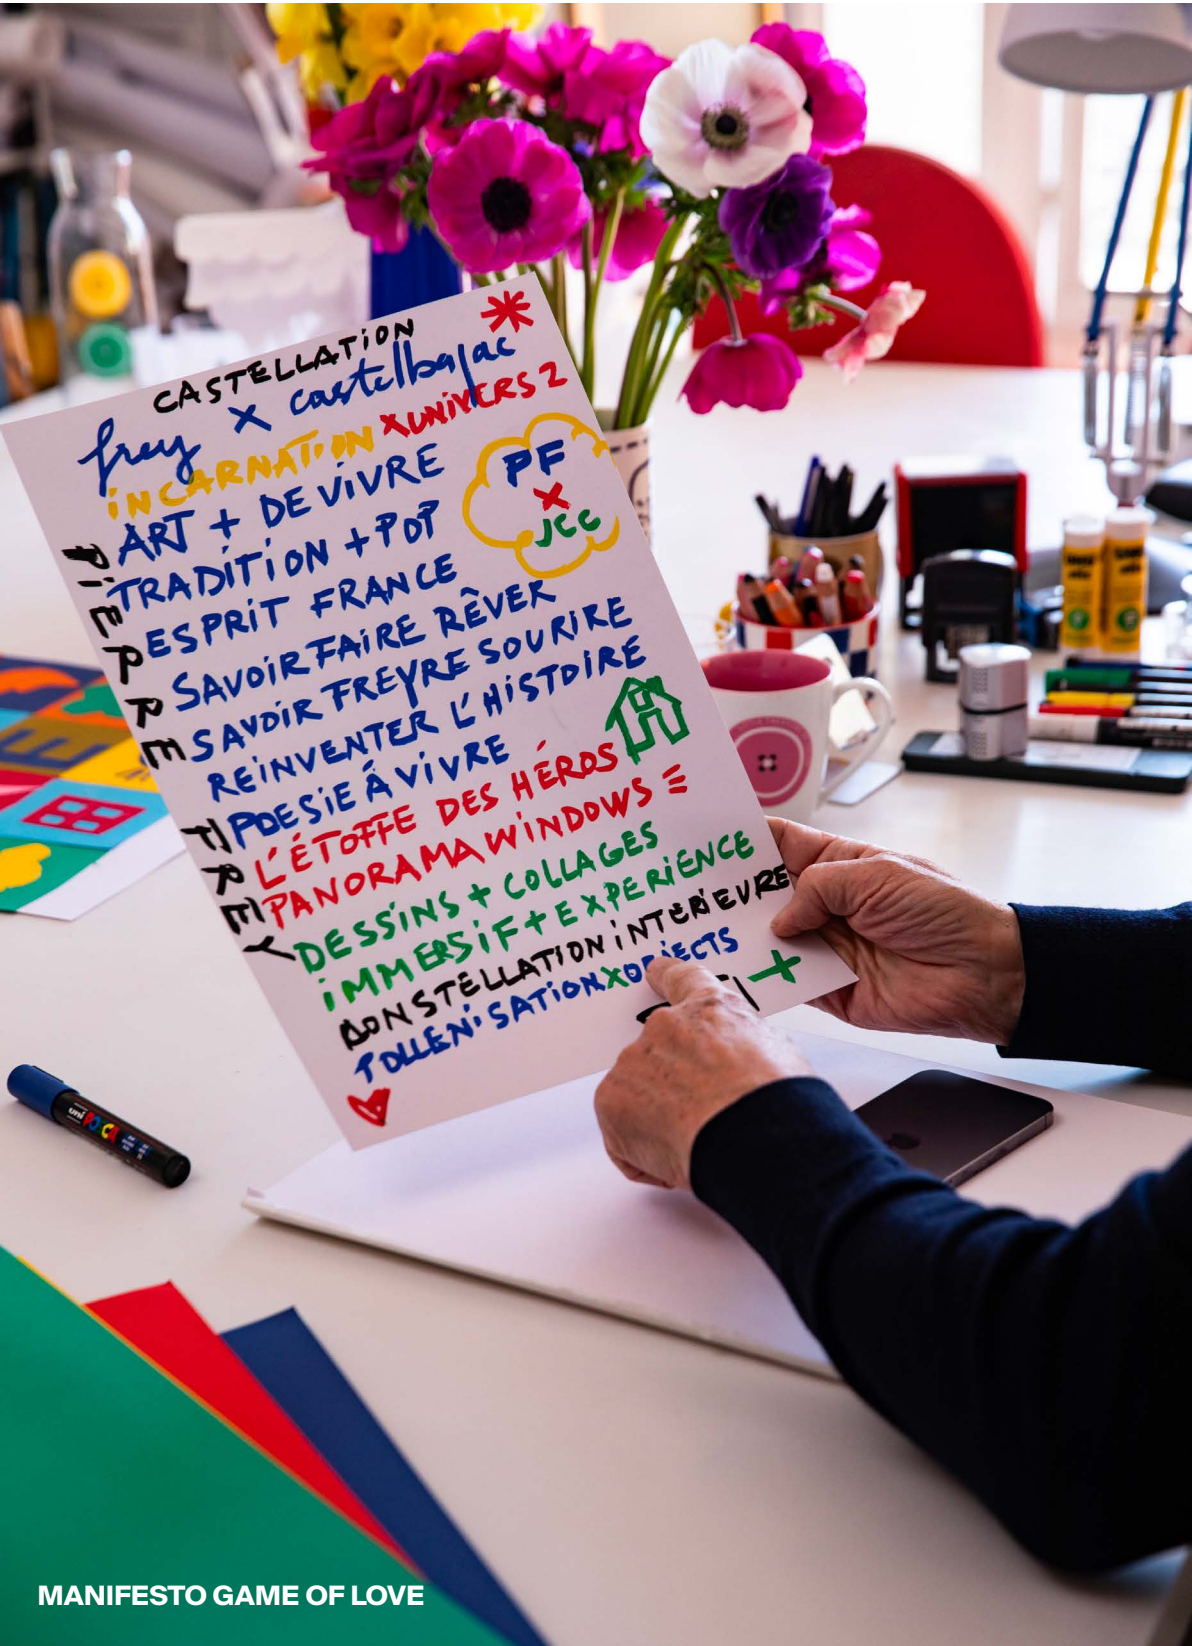 CASTELLATION
frey x castelbajac
iNCARNATiON X UNIVERS 2
PF
X
JCC
ART + DE ViVRE
TRADiTiON + POP
ESPRiT FRANCE
SAVOiR FAiRE RÊVER
SAVOiR FREYRE SOURiRE
REiNVENTER L'HiSTOiRE
POESiE À ViVRE
L'ÉTOFFE DES HÉROS
PANORAMA WiNDOWS
DESSiNS + COLLAGES
iMMERSiF + EXPERiENCE
iNTERiEURE
POLLENiSATiON X OBJECTS
PiERRE FREY
uni POSCA
MANIFESTO GAME OF LOVE